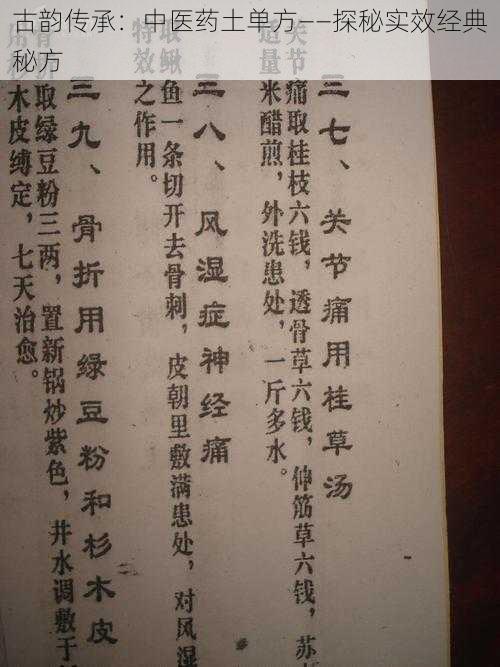 古韵传承：中医药土单方——探秘实效经典
秘方
三七、关节痛用桂草汤
关节痛取桂枝六钱，透骨草六钱，伸筋草六钱，苏木
适量米醋煎，外洗患处，一斤多水。
三八、风湿症神经痛
取鳅鱼一条切开去骨刺，皮朝里敷满患处，对风湿
特效之作用。
三九、骨折用绿豆粉和杉木皮
取绿豆粉三两，置新锅炒紫色，井水调敷于
木皮缚定，七天治愈。